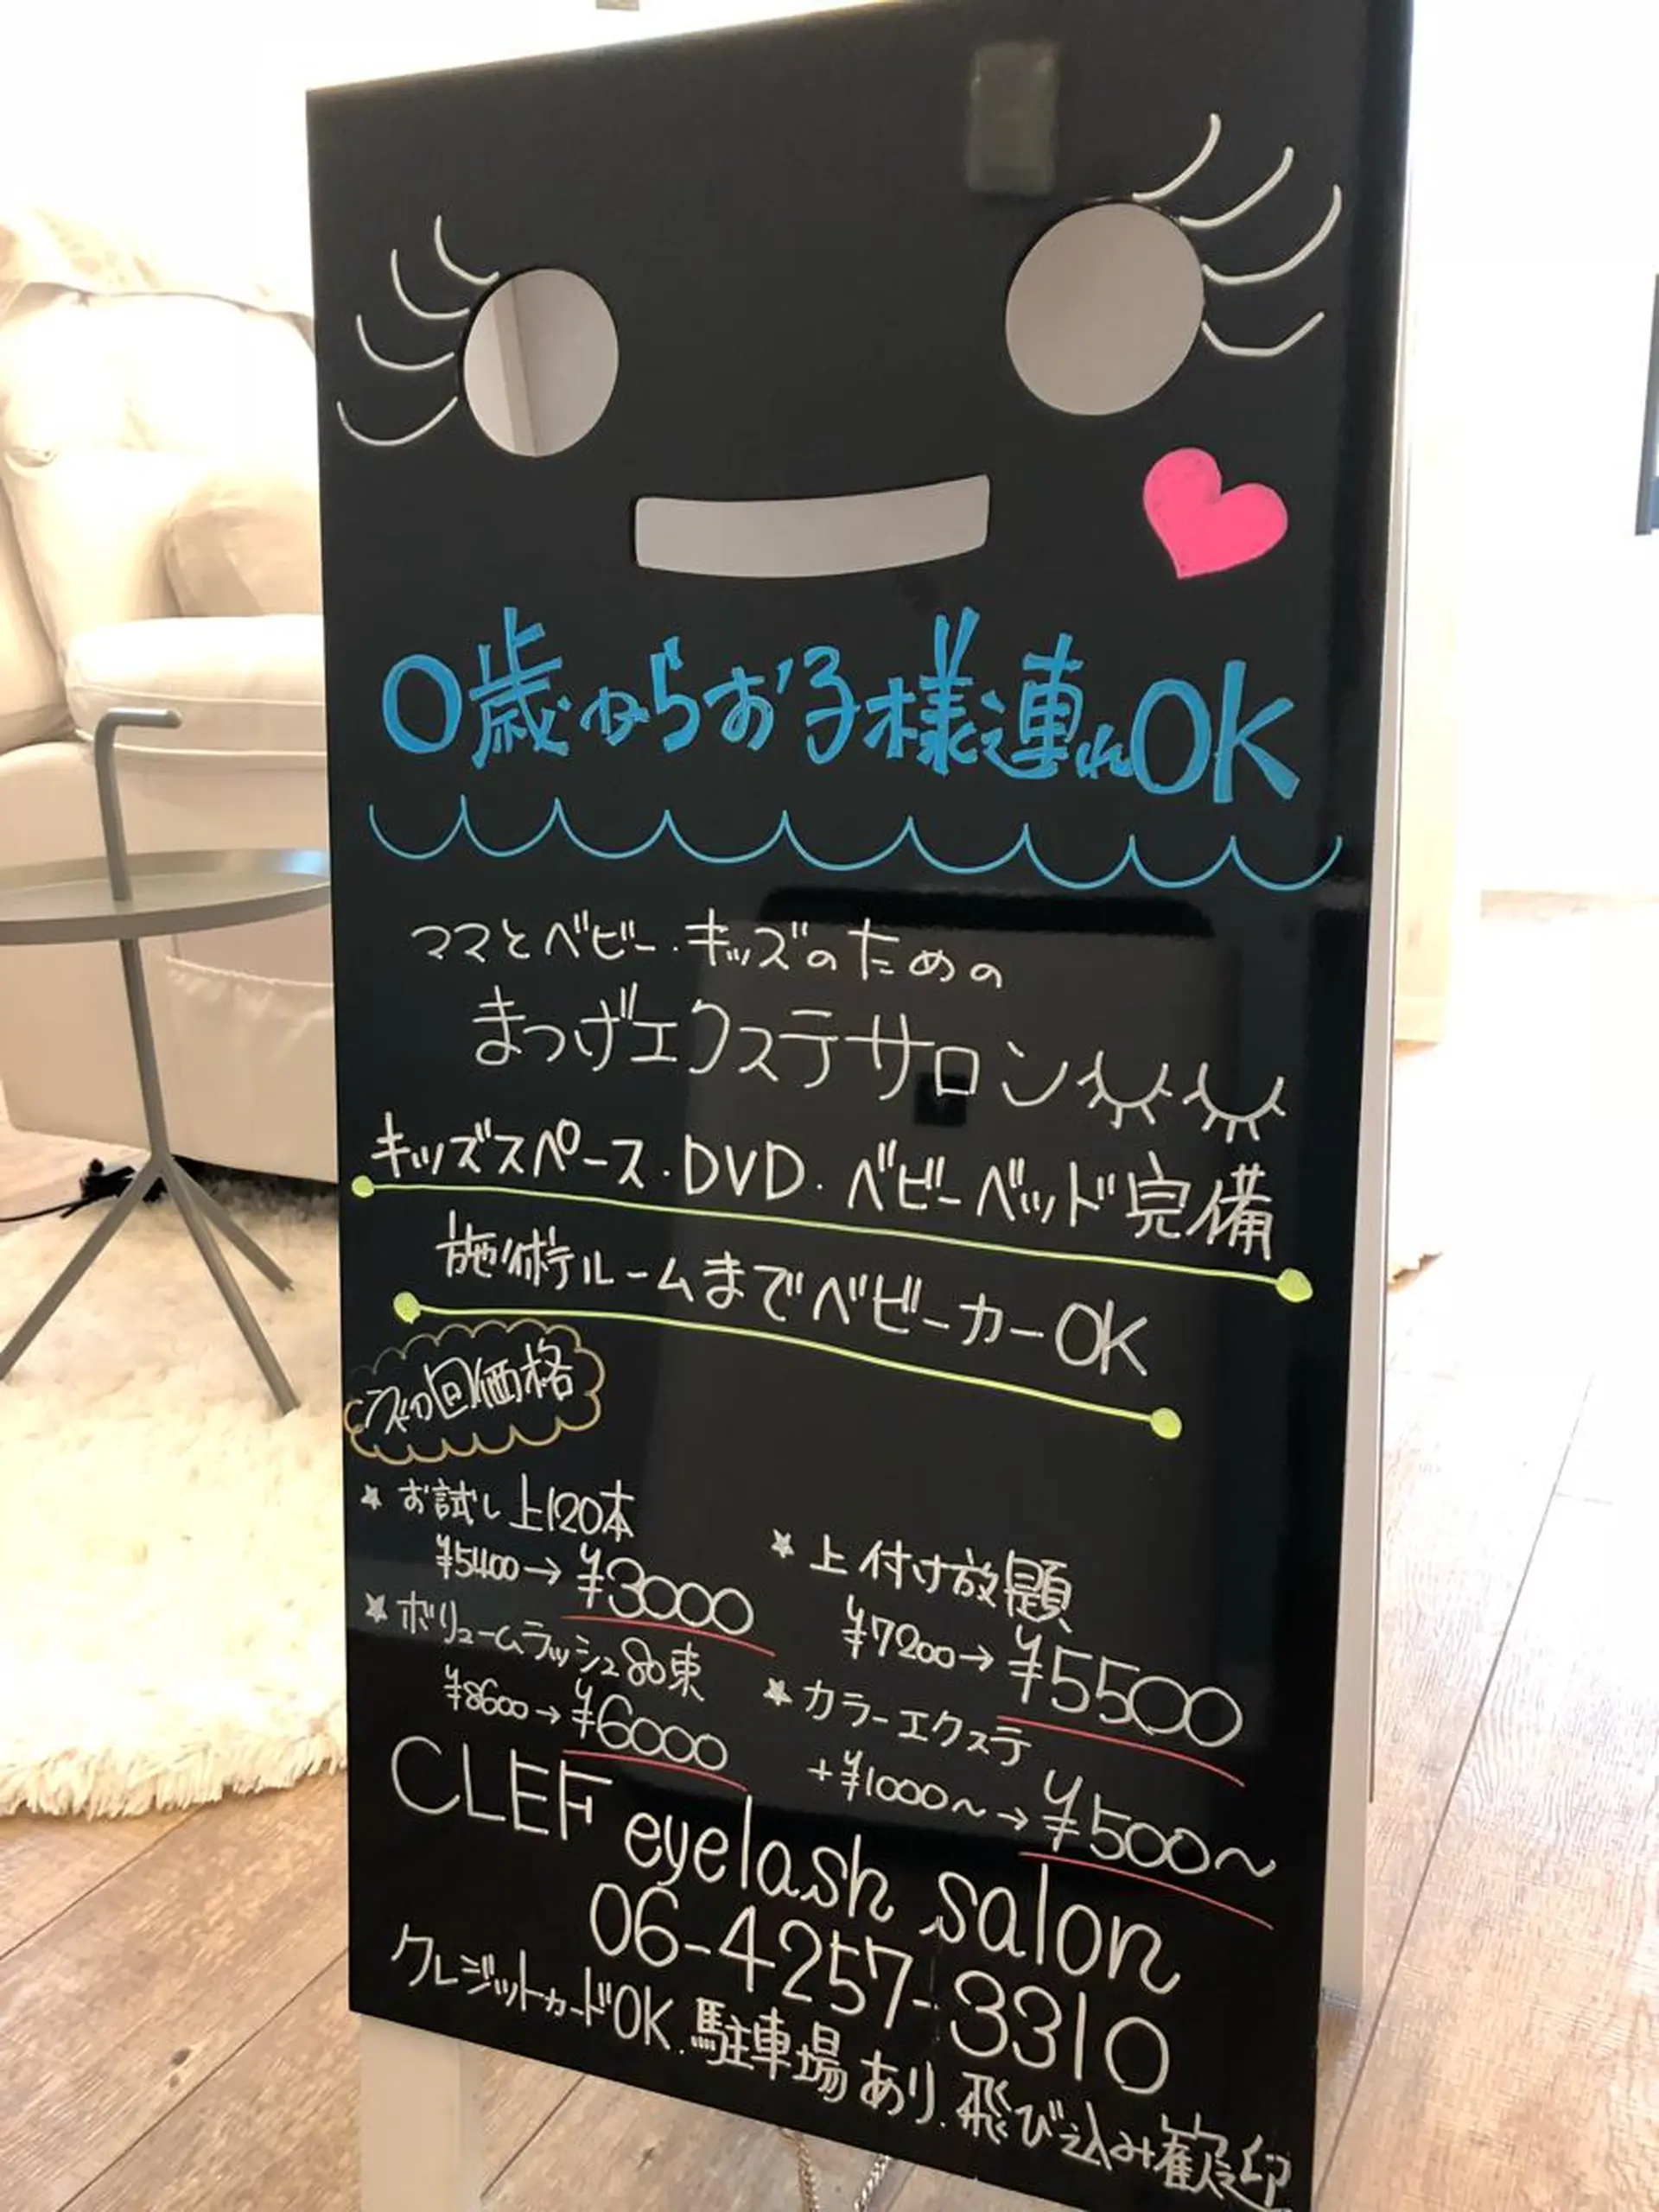 0歳からお子様連れOK
ママとベビー・キッズのための
まつげエクステサロン
キッズスペース・DVD・ベビーベッド完備
施術ルームまでベビーカーOK
初回価格
★お試し上120本
¥5400→¥3000
★ボリュームラッシュ80束
¥8600→¥6000
★上付け放題
¥7200→¥5500
★カラーエクステ
+¥1000〜→¥500〜
CLEF eyelash salon
06-4257-3310
クレジットカードOK.駐車場あり.飛び込み歓迎